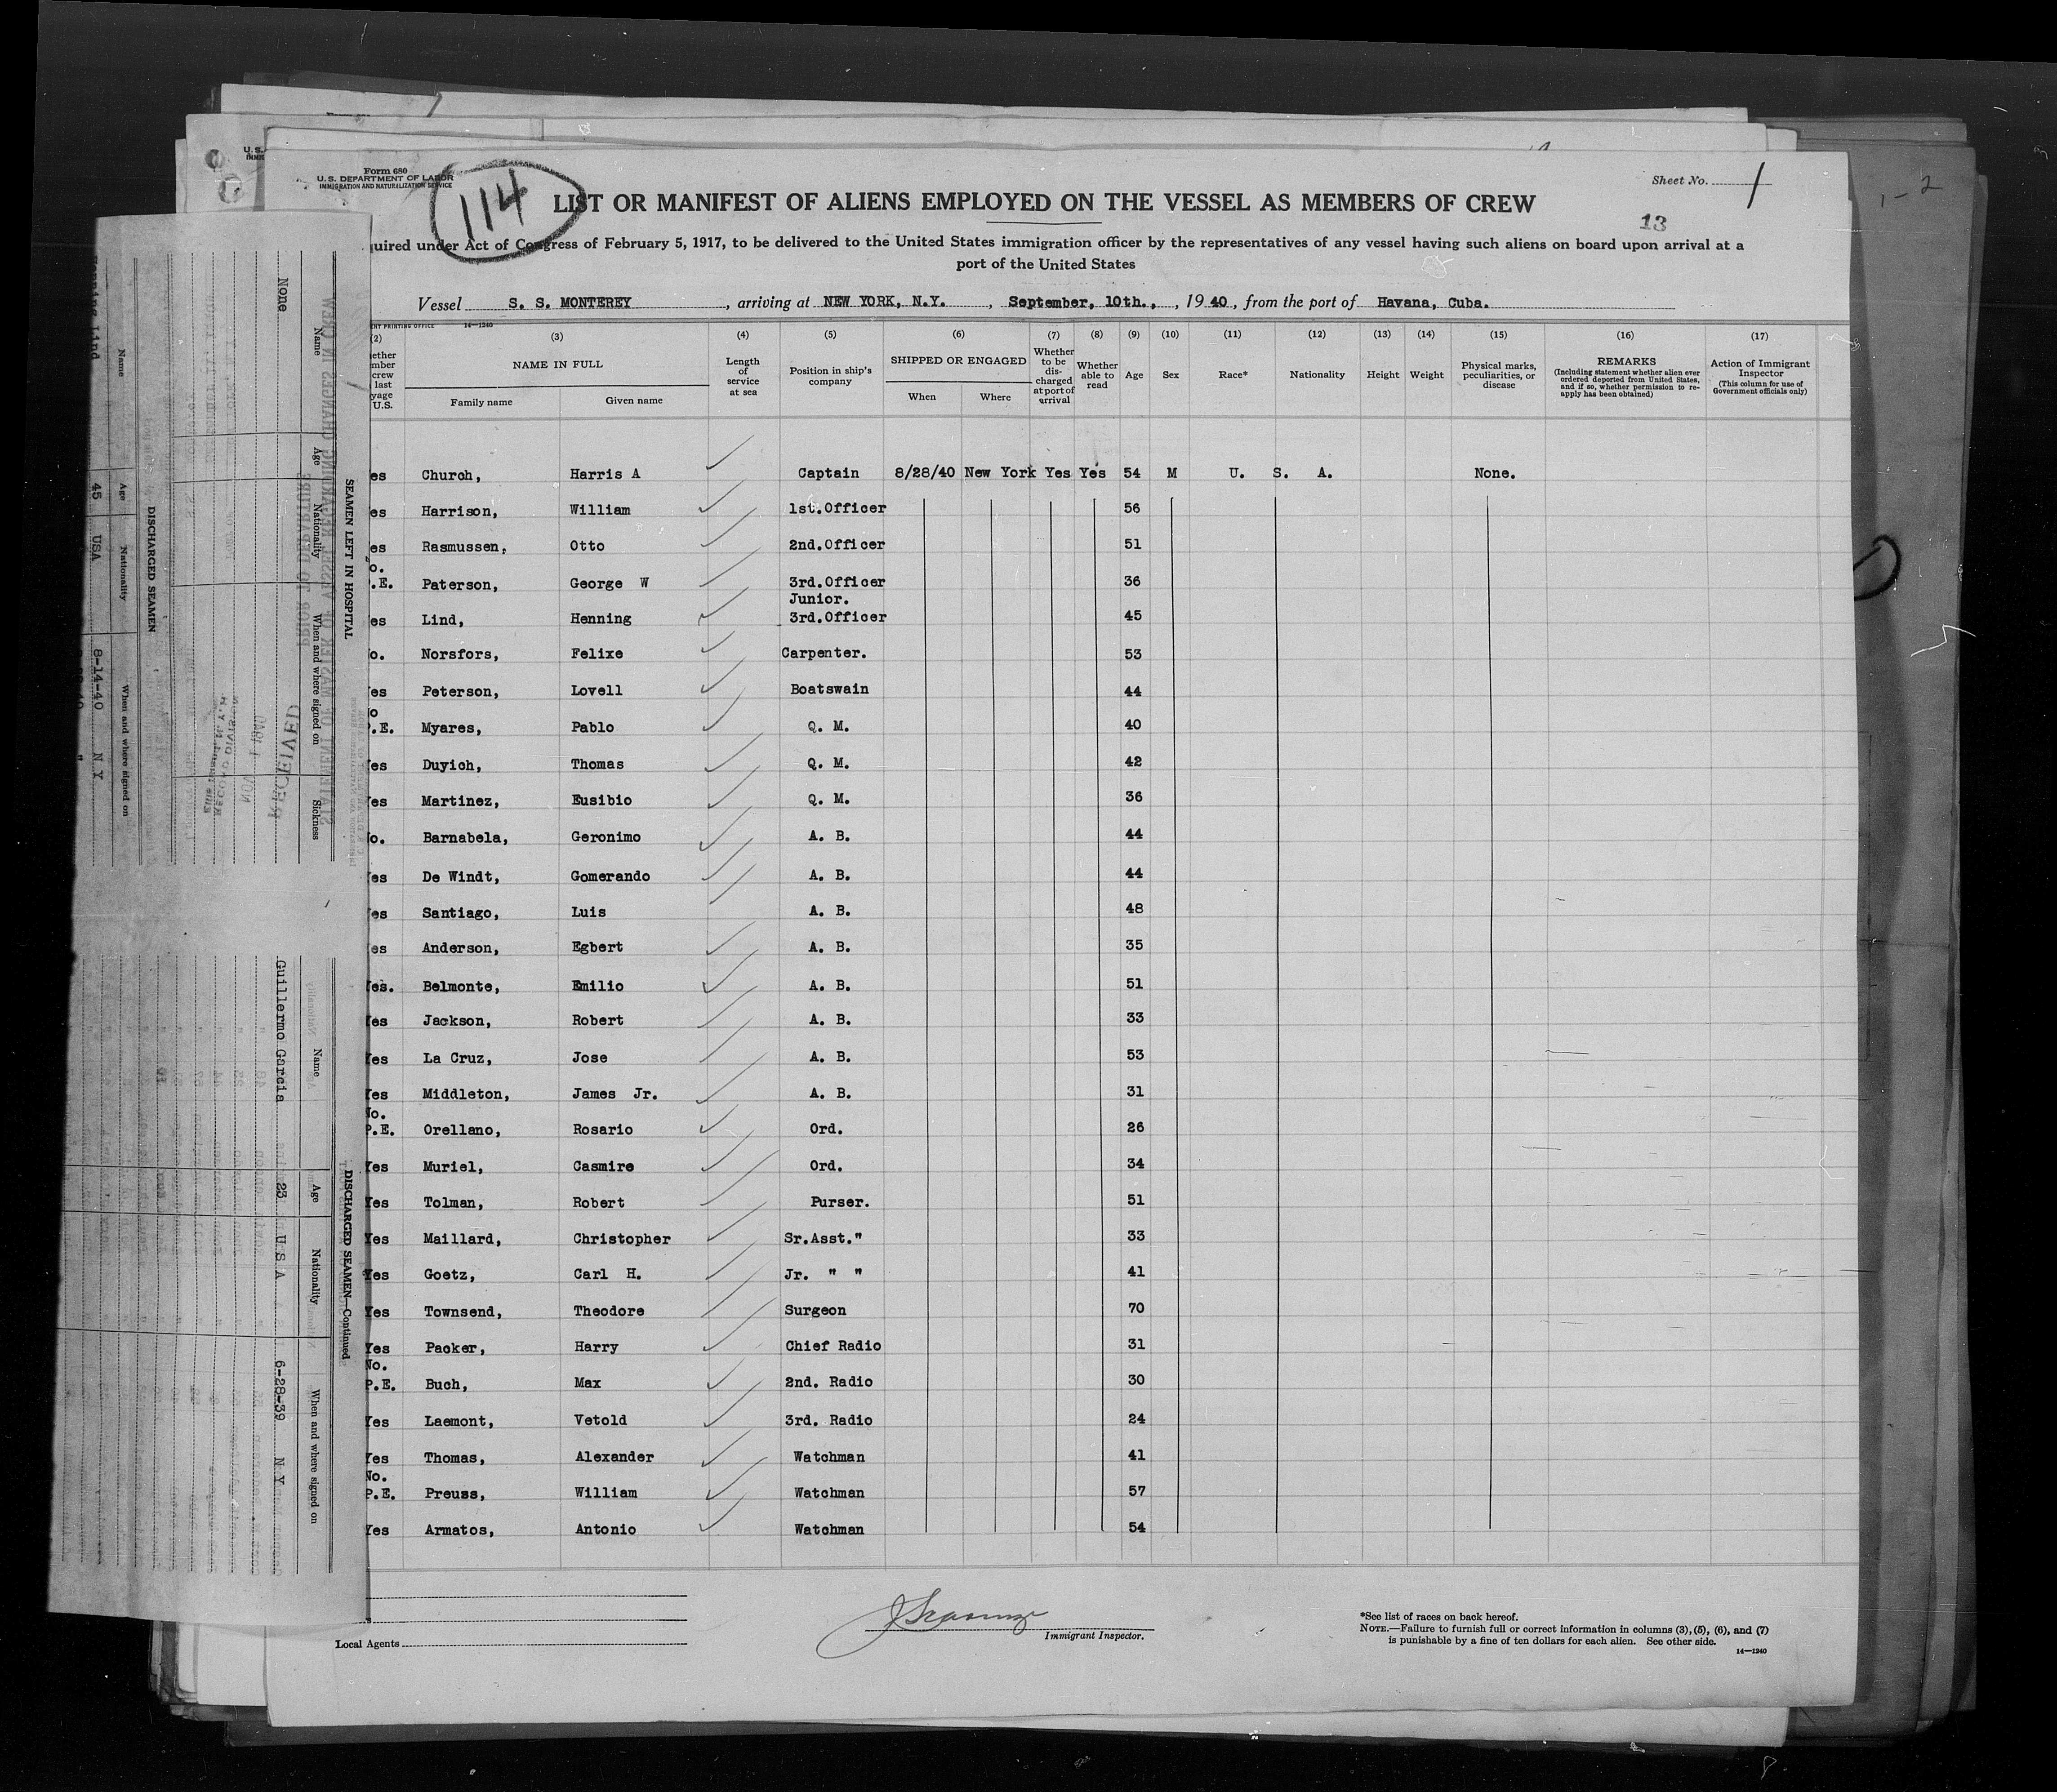 Form 680
U.S. DEPARTMENT OF LABOR
IMMIGRATION AND NATURALIZATION SERVICE
114
Sheet No. 1
LIST OR MANIFEST OF ALIENS EMPLOYED ON THE VESSEL AS MEMBERS OF CREW
13
quired under Act of Congress of February 5, 1917, to be delivered to the United States immigration officer by the representatives of any vessel having such aliens on board upon arrival at a
port of the United States
Vessel S. S. MONTEREY, arriving at NEW YORK, N.Y., September, 10th., 1940, from the port of Havana, Cuba.
14—1240
(2) (3) (4) (5) (6) (7) (8) (9) (10) (11) (12) (13) (14) (15) (16) (17)
NAME IN FULL
Family name Given name
Length of service at sea
Position in ship's company
SHIPPED OR ENGAGED
When Where
Whether to be discharged at port of arrival
Whether able to read
Age Sex Race* Nationality Height Weight
Physical marks, peculiarities, or disease
REMARKS
(Including statement whether alien ever ordered deported from United States, and if so, whether permission to reapply has been obtained)
Action of Immigrant Inspector
(This column for use of Government officials only)
es Church, Harris A Captain 8/28/40 New York Yes Yes 54 M U. S. A. None.
es Harrison, William 1st.Officer 56
es Rasmussen, Otto 2nd.Officer 51
o.
.E. Paterson, George W 3rd.Officer 36
Junior.
es Lind, Henning 3rd.Officer 45
o. Norsfors, Felixe Carpenter. 53
es Peterson, Lovell Boatswain 44
o
P.E. Myares, Pablo Q. M. 40
es Duyich, Thomas Q. M. 42
es Martinez, Eusibio Q. M. 36
o. Barnabela, Geronimo A. B. 44
es De Windt, Gomerando A. B. 44
es Santiago, Luis A. B. 48
es Anderson, Egbert A. B. 35
Yes. Belmonte, Emilio A. B. 51
Yes Jackson, Robert A. B. 33
Yes La Cruz, Jose A. B. 53
Yes Middleton, James Jr. A. B. 31
No.
P.E. Orellano, Rosario Ord. 26
Yes Muriel, Casmire Ord. 34
Yes Tolman, Robert Purser. 51
Yes Maillard, Christopher Sr.Asst." 33
Yes Goetz, Carl H. Jr. " " 41
Yes Townsend, Theodore Surgeon 70
Yes Packer, Harry Chief Radio 31
No.
P.E. Buch, Max 2nd. Radio 30
Yes Laemont, Vetold 3rd. Radio 24
Yes Thomas, Alexander Watchman 41
No.
P.E. Preuss, William Watchman 57
Yes Armatos, Antonio Watchman 54
Local Agents
Immigrant Inspector.
*See list of races on back hereof.
NOTE.—Failure to furnish full or correct information in columns (3), (5), (6), and (7)
is punishable by a fine of ten dollars for each alien. See other side.
14—1240
SEAMEN LEFT IN HOSPITAL
Name Age Nationality When and where signed on Sickness
None
RECEIVED
DISCHARGED SEAMEN
Name Age Nationality When and where signed on
Lind 45 USA 8-14-40 N Y
DISCHARGED SEAMEN—Continued
Name Age Nationality When and where signed on
Guillermo Garcia 23 U S A 6-28-39 N Y
1-2